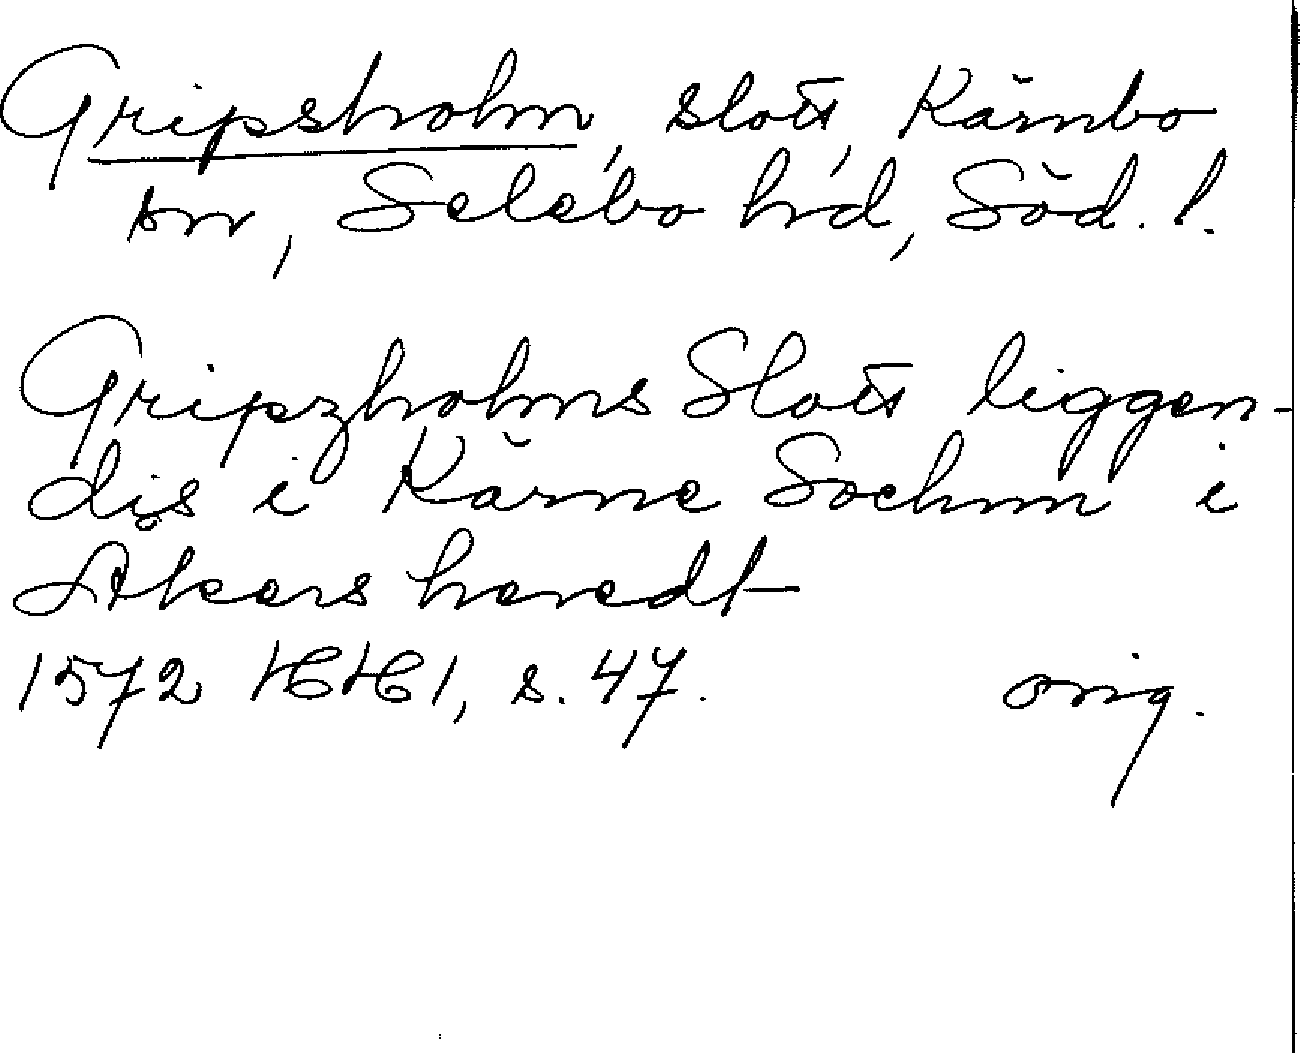 Gripsholm, slott, Kärnbo
sn, Selebo hd, Söd. l.
Gripzholms Slott liggen-
dis i Kärne Sochnn i
Åkers heredt
1572 HH 1, s. 47. orig.